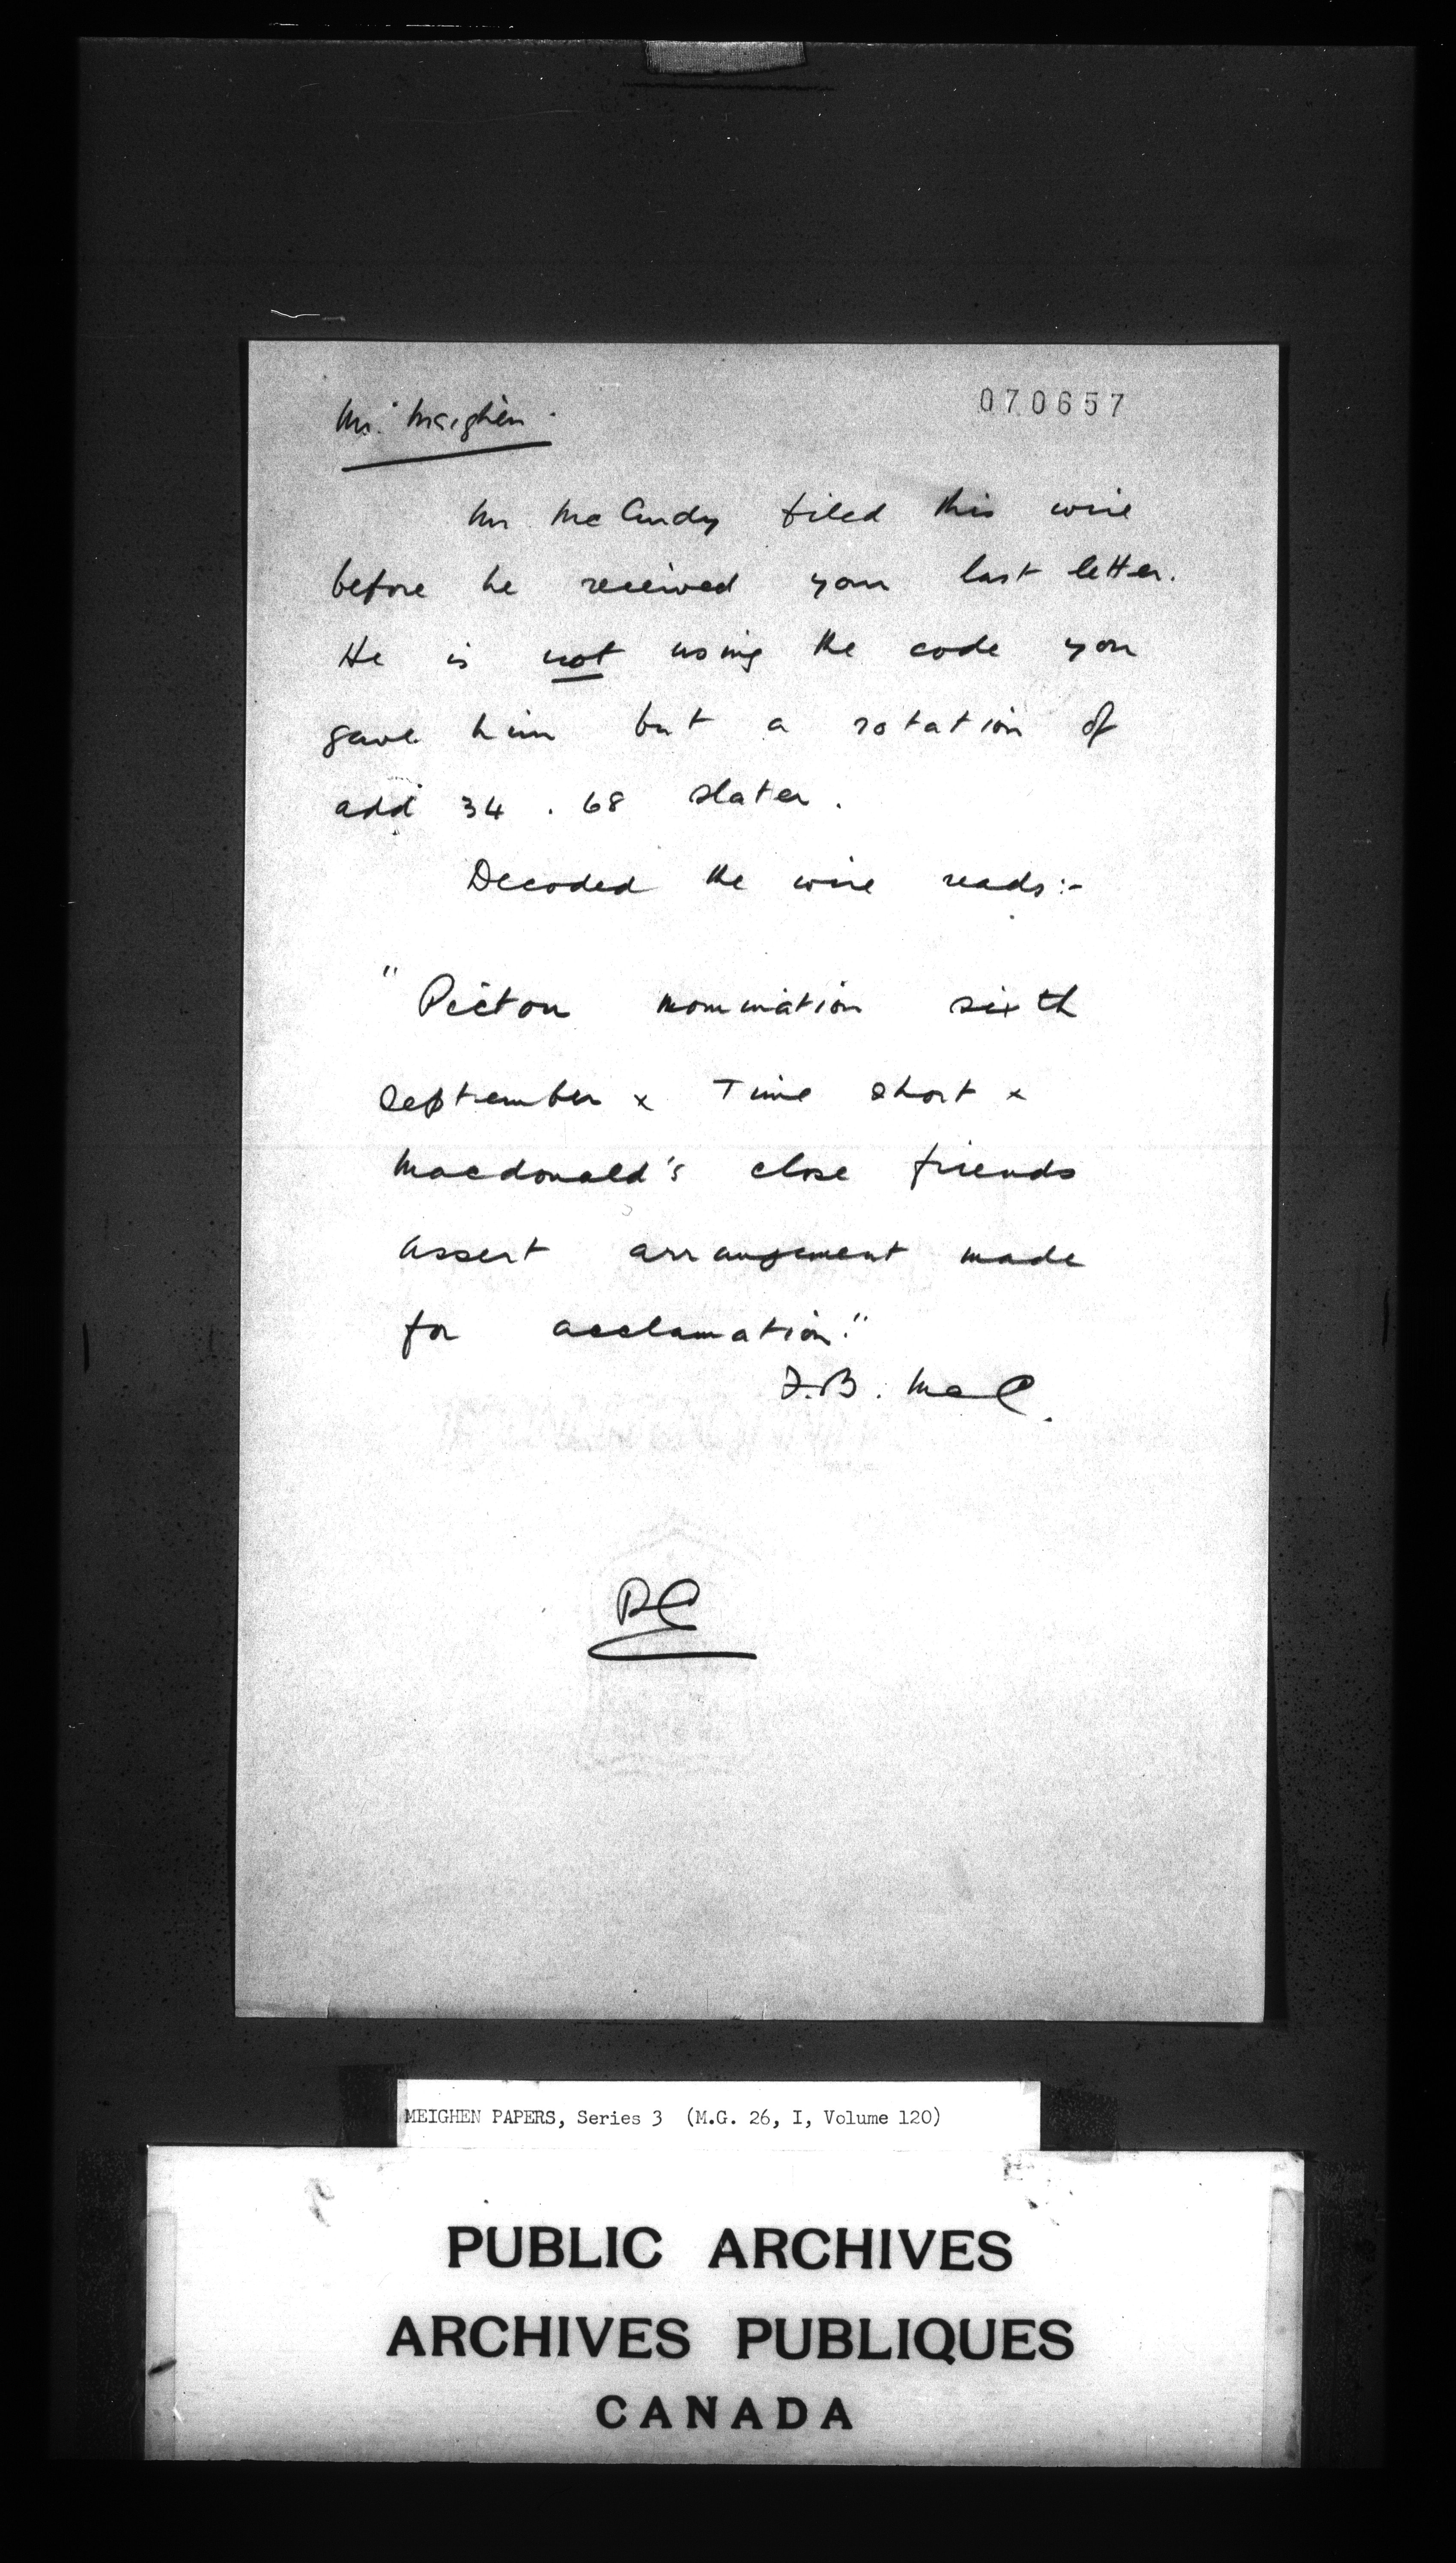 070657
Mr. Meighen.
Mr McCurdy filed this wire
before he received your last letter.
He is not using the code you
gave him but a rotation of
add 34 . 68 slater.
Decoded the wire reads:-
"Pictou nomination sixth
September x Time short x
Macdonald's close friends
assert arrangement made
for acclamation."
F.B. McC.
MEIGHEN PAPERS, Series 3 (M.G. 26, I, Volume 120)
PUBLIC ARCHIVES
ARCHIVES PUBLIQUES
CANADA